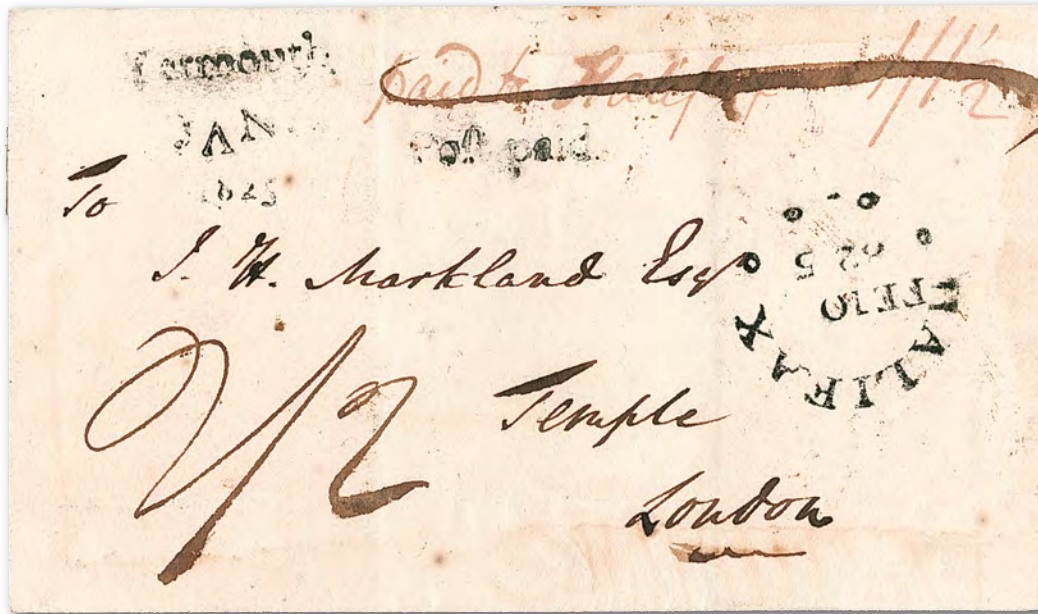 Yarmouth
paid to Halifax 1/1½
JAN
Post paid.
1825
To
J. H. Markland Esqr
HALIFAX
FE 10
825
2/2
Temple
London